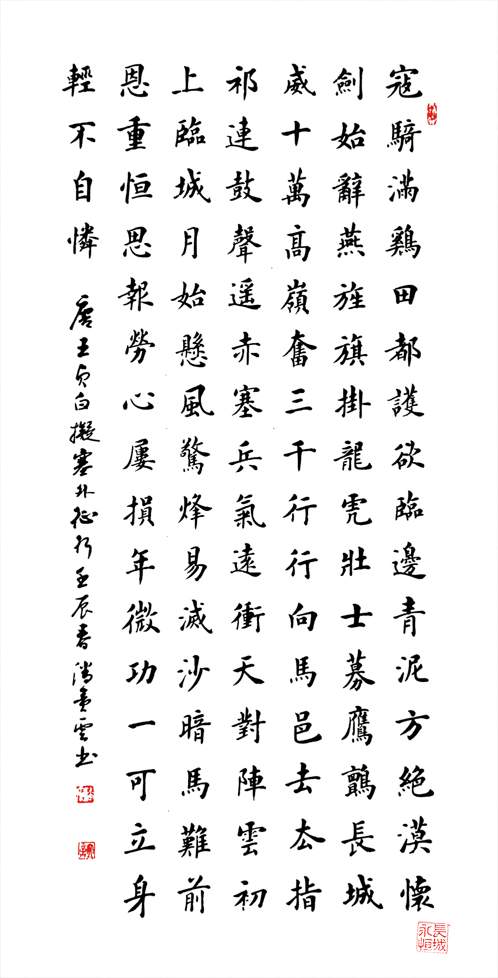 寇騎滿鷄田都護欲臨邊青泥方絕漠懷
劍始辭燕旌旗掛龍虎壯士募鷹鸇長城
威十萬高嶺奮三千行行向馬邑去去指
祁連鼓聲遥赤塞兵氣遠衝天對陣雲初
上臨城月始懸風驚烽易滅沙暗馬難前
恩重恒思報勞心屢損年微功一可立身
輕不自憐
唐王贞白擬塞外征行壬辰春书
長城永恒